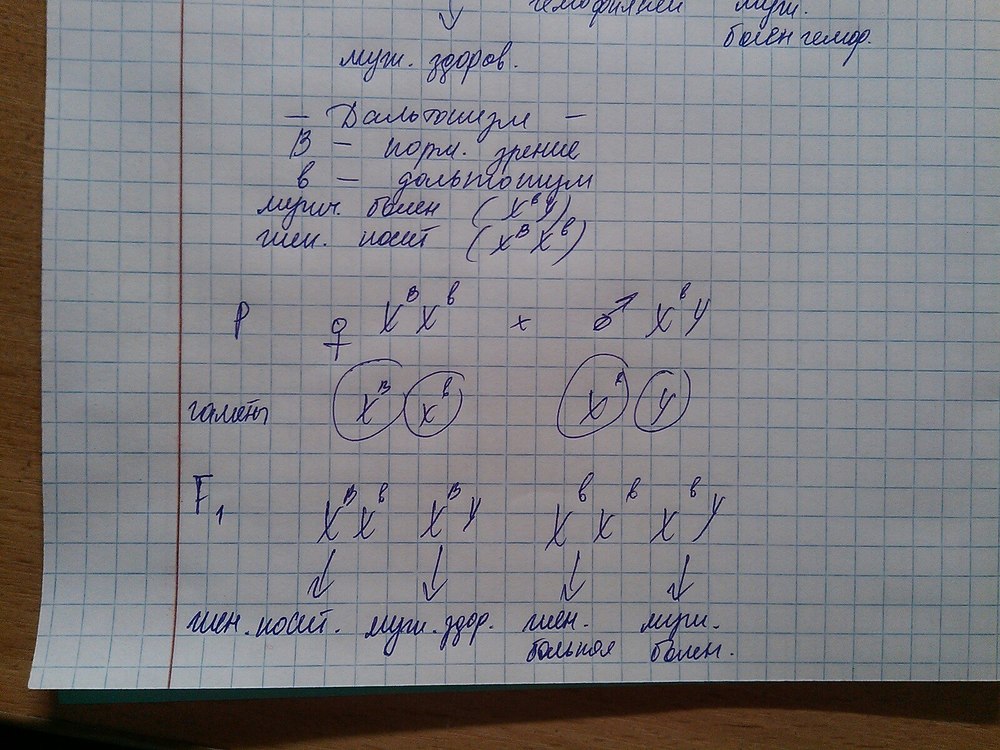 гемофилией муж.
болен гемоф.
муж. здоров.
— Дальтонизм —
В — норм. зрение
в — дальтонизм
мужч. болен (XᵇY)
жен. носит (XᴮXᵇ)
P ♀ XᴮXᵇ × ♂ XᵇY
гаметы Xᴮ Xᵇ Xᵇ Y
F₁ XᴮXᵇ XᴮY XᵇXᵇ XᵇY
жен. носит. муж. здор. жен. муж.
больная болен.